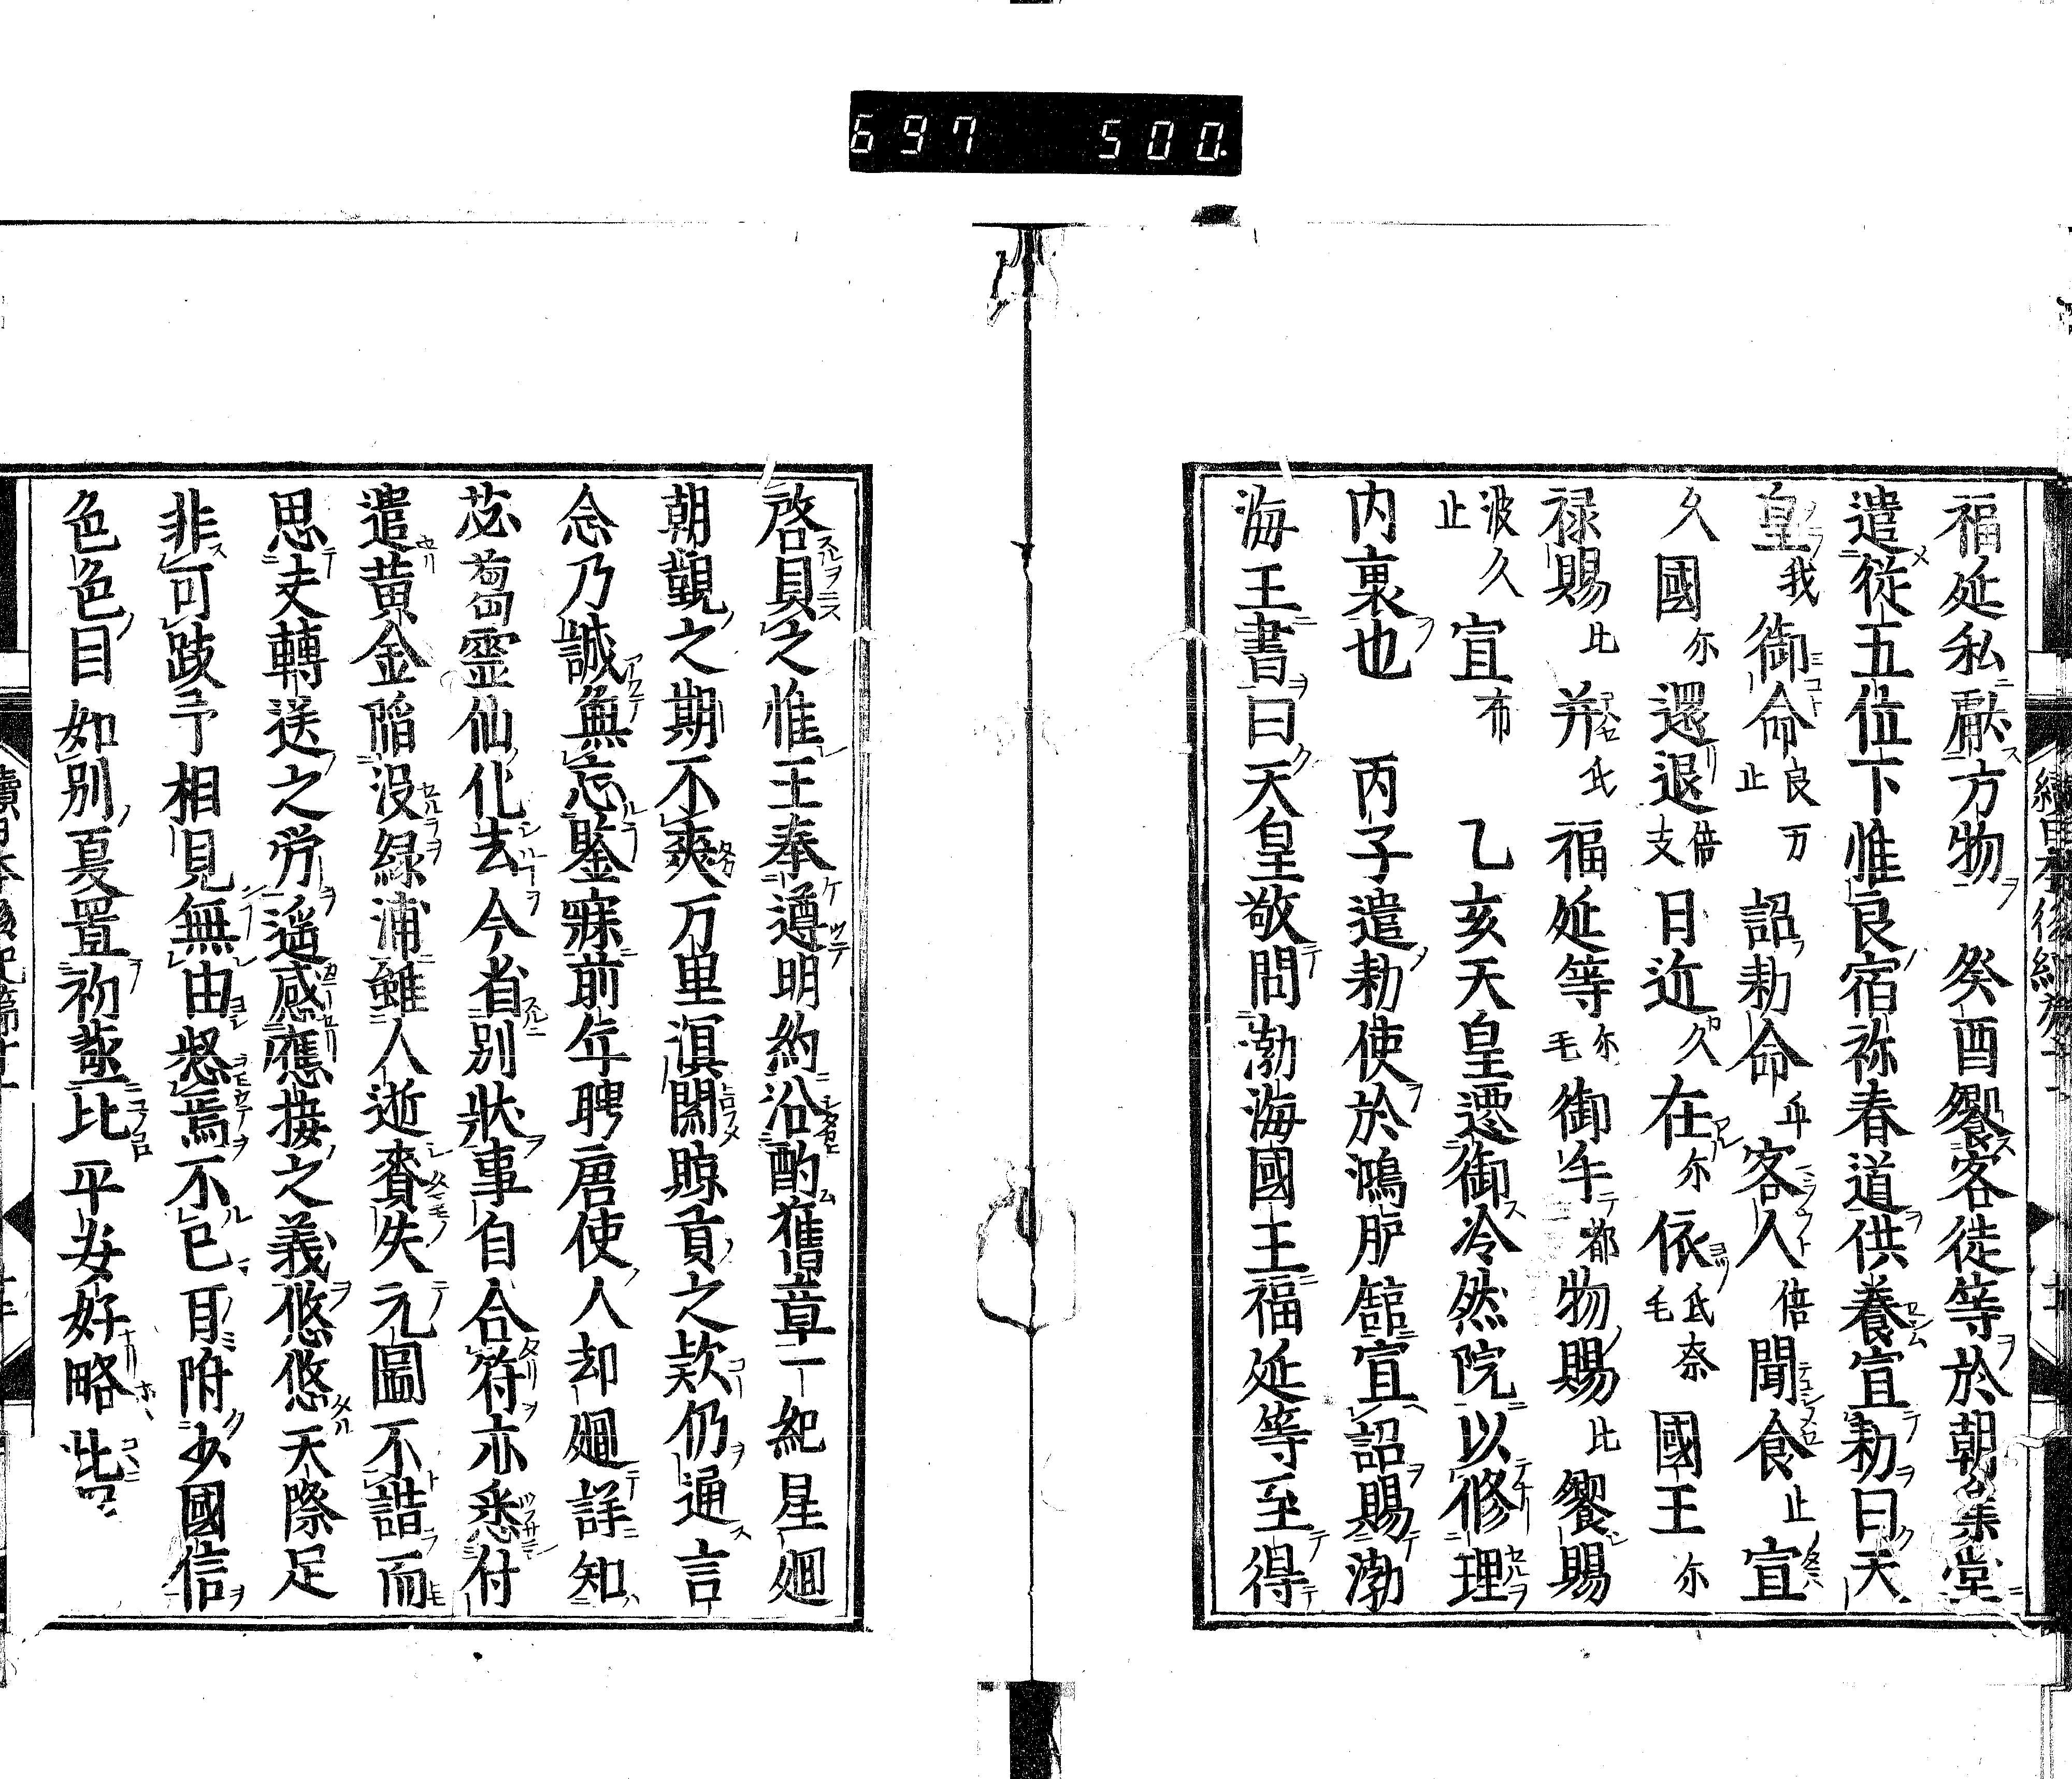 697 500.
福延私獻方物 癸酉饗客徒等於朝集堂
遣從五位下惟良宿祢春道供養宣勅曰天
皇我御命良止万詔勅命乎客人倍聞食止宣
久國尓還退倍支日近久在尓依氐毛奈國王尓
禄賜比并氐福延等尓毛御手都物賜比饗賜
波久止宣布 乙亥天皇遷御冷然院以修理
内裏也 丙子遣勅使於鴻臚舘宣詔賜渤
海王書曰天皇敬問渤海國王福延等至得
啓具之惟王奉遵明約沿酌舊章一紀星廻
朝覲之期不爽万里溟闊賝貢之款仍通言
念乃誠無忘鑒寐前年聘唐使人却廻詳知
苾蒭靈仙化去今省別狀事自合符亦悉付
遣黄金陷没綠浦雖人逝賷失元圖不諧而
思夫轉送之勞遥感應接之義悠悠天際足
非可跂予相見無由怒焉不已耳附少國信
色色目如別夏置初蒸比平安好略此